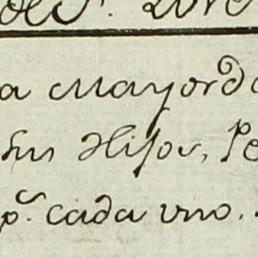 a Mayordo
sus Hijos, Pe
p.ª cada uno.